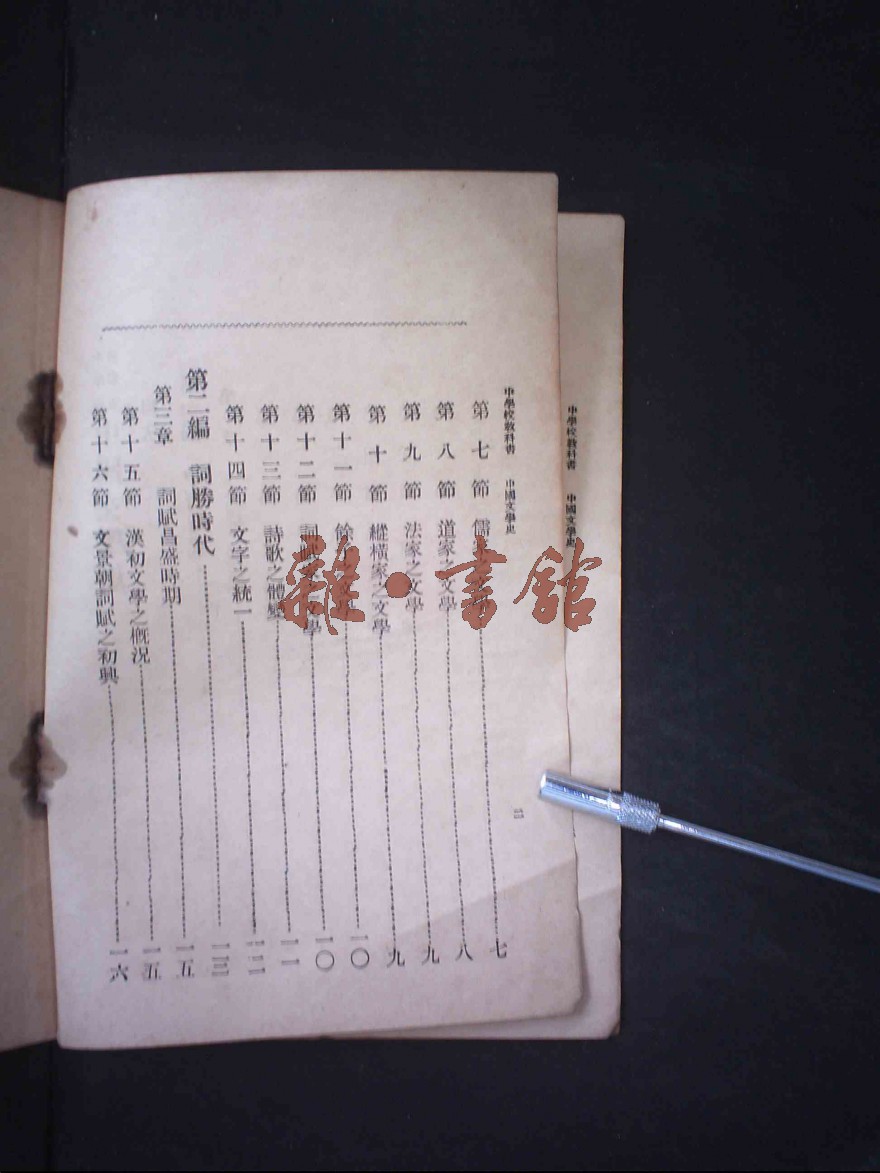 中學校教科書 中國文學史
中學校教科書 中國文學史 二
第七節 儒 七
第八節 道家之文學 八
第九節 法家之文學 九
第十節 縱橫家之文學 九
第十一節 餘 一〇
第十二節 詞賦 學 一〇
第十三節 詩歌之體變 一一
第十四節 文字之統一 一二
第二編 詞勝時代 一三
第三章 詞賦昌盛時期 一五
第十五節 漢初文學之概況 一五
第十六節 文景朝詞賦之初興 一六
雜·書館